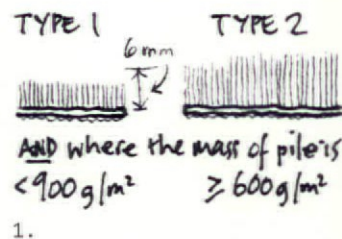 TYPE 1 TYPE 2
6 mm
AND where the mass of pile is
<900g/m² ≥600g/m²
1.